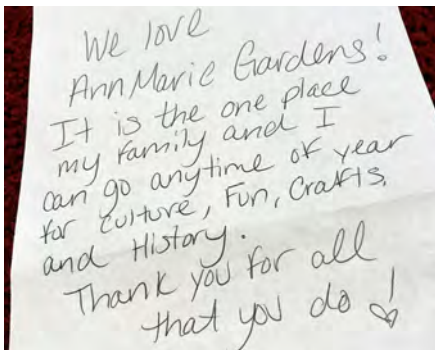 We love
AnnMarie Gardens!
It is the one place
my family and I
can go anytime of year
for culture, Fun, Crafts,
and History.
Thank you for all
that you do!